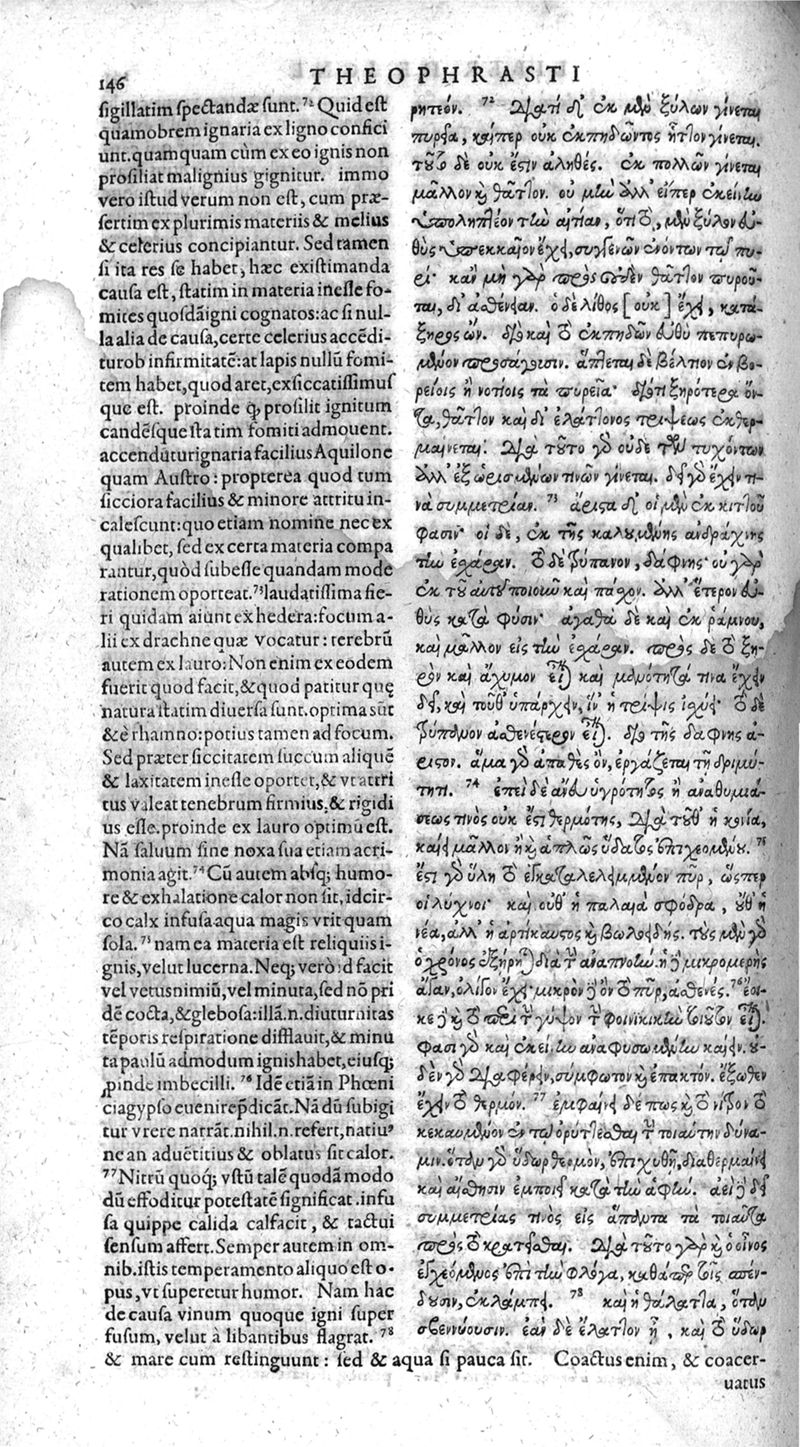 146
THEOPHRASTI
sigillatim spectandæ sunt. 72 Quid est
quamobrem ignaria ex ligno confici
unt. quamquam cùm ex eo ignis non
prosiliat malignius gignitur. immo
vero istud verum non est, cum præ-
sertim ex plurimis materiis & melius
& celerius concipiantur. Sed tamen
si ita res se habet, hæc existimanda
causa est, statim in materia inesse fo-
mites quosdā igni cognatos: ac si nul-
la alia de causa, certe celerius accēdi-
tur ob infirmitatē: at lapis nullū fomi-
tem habet, quod aret, exsiccatissimus
que est. proinde q; prosilit ignitum
candēsque statim fomiti admouent.
accendūtur ignaria facilius Aquilone
quam Austro: propterea quod tum
sicciora facilius & minore attritu in-
calescunt: quo etiam nomine nec ex
qualibet, sed ex certa materia compa
rantur, quòd subesse quandam mode
rationem oporteat. 73 laudatissima fie-
ri quidam aiunt ex hedera: focum a-
lii ex drachne quæ vocatur: terebrū
autem ex lauro: Non enim ex eodem
fuerit quod facit, & quod patitur quę
natura statim diuersa sunt. optima sūt
& è rhamno: potius tamen ad focum.
Sed præter siccitatem succum aliquē
& laxitatem inesse oportet, & vt attri
tus valeat tenebrum firmius, & rigidi
us esse. proinde ex lauro optimū est.
Nā saluum sine noxa sua etiam acri-
monia agit. 74 Cū autem absq; humo-
re & exhalatione calor non sit, idcir-
co calx infusa aqua magis vrit quam
sola. 75 nam ea materia est reliquiis i-
gnis, velut lucerna. Neq; verò id facit
vel vetus nimiū, vel minuta, sed nō pri
dē cocta, & glebosa: illā .n. diuturnitas
tēporis respiratione difflauit, & minu
ta paulū admodum ignis habet, eiusq;
proinde imbecilli. 76 Idē etiā in Phœni
cia gypso euenire prædicāt. Nā dū subigi
tur vrere narrāt. nihil .n. refert, natiu⁹
ne an aduētitius & oblatus sit calor.
77 Nitrū quoq; vstū talē quodā modo
dū effoditur potestatē significat. infu
sa quippe calida calfacit, & tactui
sensum affert. Semper autem in om-
nib. istis temperamento aliquo est o-
pus, vt superetur humor. Nam hac
de causa vinum quoque igni super
fusum, velut à libantibus flagrat. 78
& mare cum restinguunt: sed & aqua si pauca sit. Coactus enim, & coacer-
uatus
ρητέον. 72 Διατί δ' ἐκ μὲν ξύλων γίνεται
πυρεῖα, καίπερ οὐκ ἐκπηδῶντος ἧττον γίνεται.
τοῦτο δὲ οὐκ ἔστιν ἀληθές. ἐκ πολλῶν γίνεται
μᾶλλον καὶ θᾶττον. οὐ μὴν ἀλλ' εἴπερ ἐκείνην
ὑποληπτέον τὴν αἰτίαν, ὅτι τὸ μὲν ξύλον εὐ-
θὺς ὑπέκκαιον ἔχει, συγγενῶν ὄντων τῷ πυ-
ρί· κἂν μὴ γὰρ πρὸς οὐδὲν θᾶττον πυροῦ-
ται, δι' ἀσθένειαν. ὁ δὲ λίθος [οὐκ] ἔχει, κατά-
ξηρος ὤν. διὸ καὶ τὸ ἐκπηδῶν εὐθὺ πεπυρω-
μένον προσάγουσιν. ἅπτεται δὲ βέλτιον ἐν βο-
ρείοις ἢ νοτίοις τὰ πυρεῖα· διότι ξηρότερα ὄν-
τα, θᾶττον καὶ δι' ἐλάττονος τρίψεως ἐκθερ-
μαίνεται. Διὰ τοῦτο γὰρ οὐδὲ τῶν τυχόντων
ἀλλ' ἐξ ὡρισμένων τινῶν γίνεται. δεῖ γὰρ ἔχειν τι-
νὰ συμμετρίαν. 73 ἄριστα δ' οἱ μὲν ἐκ κιττοῦ
φασιν· οἱ δὲ, ἐκ τῆς καλουμένης ἀνδράχνης
τὴν ἐσχάραν. τὸ δὲ τρύπανον, δάφνης· οὐ γὰρ
ἐκ τοῦ αὐτοῦ ποιοῦν καὶ πάσχον. ἀλλ' ἕτερον εὐ-
θὺς κατὰ φύσιν· ἀγαθὰ δὲ καὶ ἐκ ῥάμνου,
καὶ μᾶλλον εἰς τὴν ἐσχάραν. πρὸς δὲ τὸ ξη-
ρὸν καὶ ἄχυμον εἶναι καὶ μανότητά τινα ἔχειν
δεῖ, καὶ τοῦθ' ὑπάρχειν, ἵν' ἡ τρίψις ἰσχύῃ· τὸ δὲ
τρύπανον ἀσθενέστερον εἶναι. διὸ τῆς δάφνης ἄ-
ριστον. ἅμα γὰρ ἀπαθὲς ὂν, ἐργάζεται τῇ δριμύ-
τητι. 74 ἐπεὶ δὲ ἄνευ ὑγρότητος ἢ ἀναθυμιά-
σεως τινὸς οὐκ ἔστι θερμότης, Διὰ τοῦθ' ἡ κονία,
καίει μᾶλλον ἢ καὶ ἁπλῶς ὕδατος ἐπιχεομένου. 75
ἔστι γὰρ ὕλη τὸ ἐγκαταλελειμμένον πῦρ, ὥσπερ
οἱ λύχνοι· καὶ οὔθ' ἡ παλαιὰ σφόδρα, οὔθ' ἡ
νέα, ἀλλ' ἡ ἀρτίκαυστος καὶ βωλοειδής. τοὺς μὲν γὰρ
ὁ χρόνος ἐξήρηται διὰ τὴν ἀναπνοὴν. ἡ δὲ μικρομερὴς
ἄγαν, ὀλίγον ἔχει· μικρὸν δὲ ὂν τὸ πῦρ, ἀσθενές. 76 ἔοι-
κε δὲ καὶ τὸ περὶ τὴν γύψον τὴν φοινικικὴν ταὐτὸν εἶναι.
φασὶ γὰρ καὶ ἐκείνην ἀναφυσωμένην καίειν. οὐ-
δὲν γὰρ διαφέρειν, σύμφυτον καὶ ἐπακτὸν. ἔξωθεν
ἔχειν τὸ θερμόν. 77 ἐμφαίνει δέ πως καὶ τὸ νίτρον τὸ
κεκαυμένον ἐν τῷ ὀρύττεσθαι τὴν τοιαύτην δύνα-
μιν. ὅταν γὰρ ὕδωρ θερμὸν, ἐπιχυθῇ, διαθερμαίνει
καὶ αἴσθησιν ἐμποιεῖ κατὰ τὴν ἁφήν. ἀεὶ δὲ δεῖ
συμμετρίας τινὸς εἰς ἅπαντα τὰ τοιαῦτα
πρὸς τὸ κρατεῖσθαι. Διὰ τοῦτο γὰρ καὶ ὁ οἶνος
ἐγχεόμενος ἐπὶ τὴν φλόγα, καθάπερ τοῖς σπέν-
δουσιν, ἐκλάμπει. 78 καὶ ἡ θάλαττα, ὅταν
σβεννύουσιν. ἐὰν δὲ ἔλαττον ᾖ, καὶ τὸ ὕδωρ